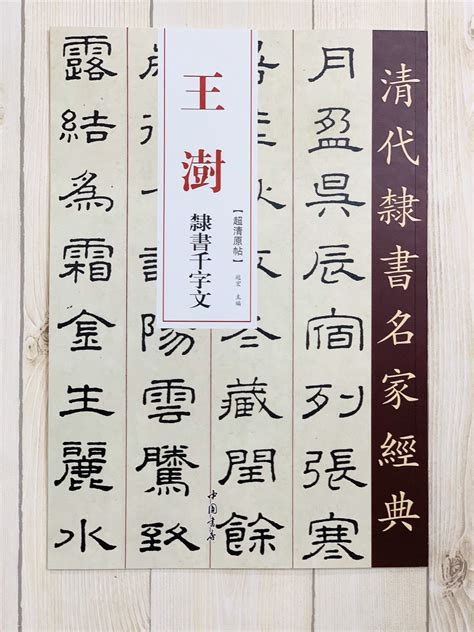 清代隸書名家經典
月盈昃辰宿列張寒
暑往秋收冬藏閏餘
王澍
隸書千字文
【超清原帖】
主編
歲律陽雲騰致
露結為霜金生麗水
中國書店